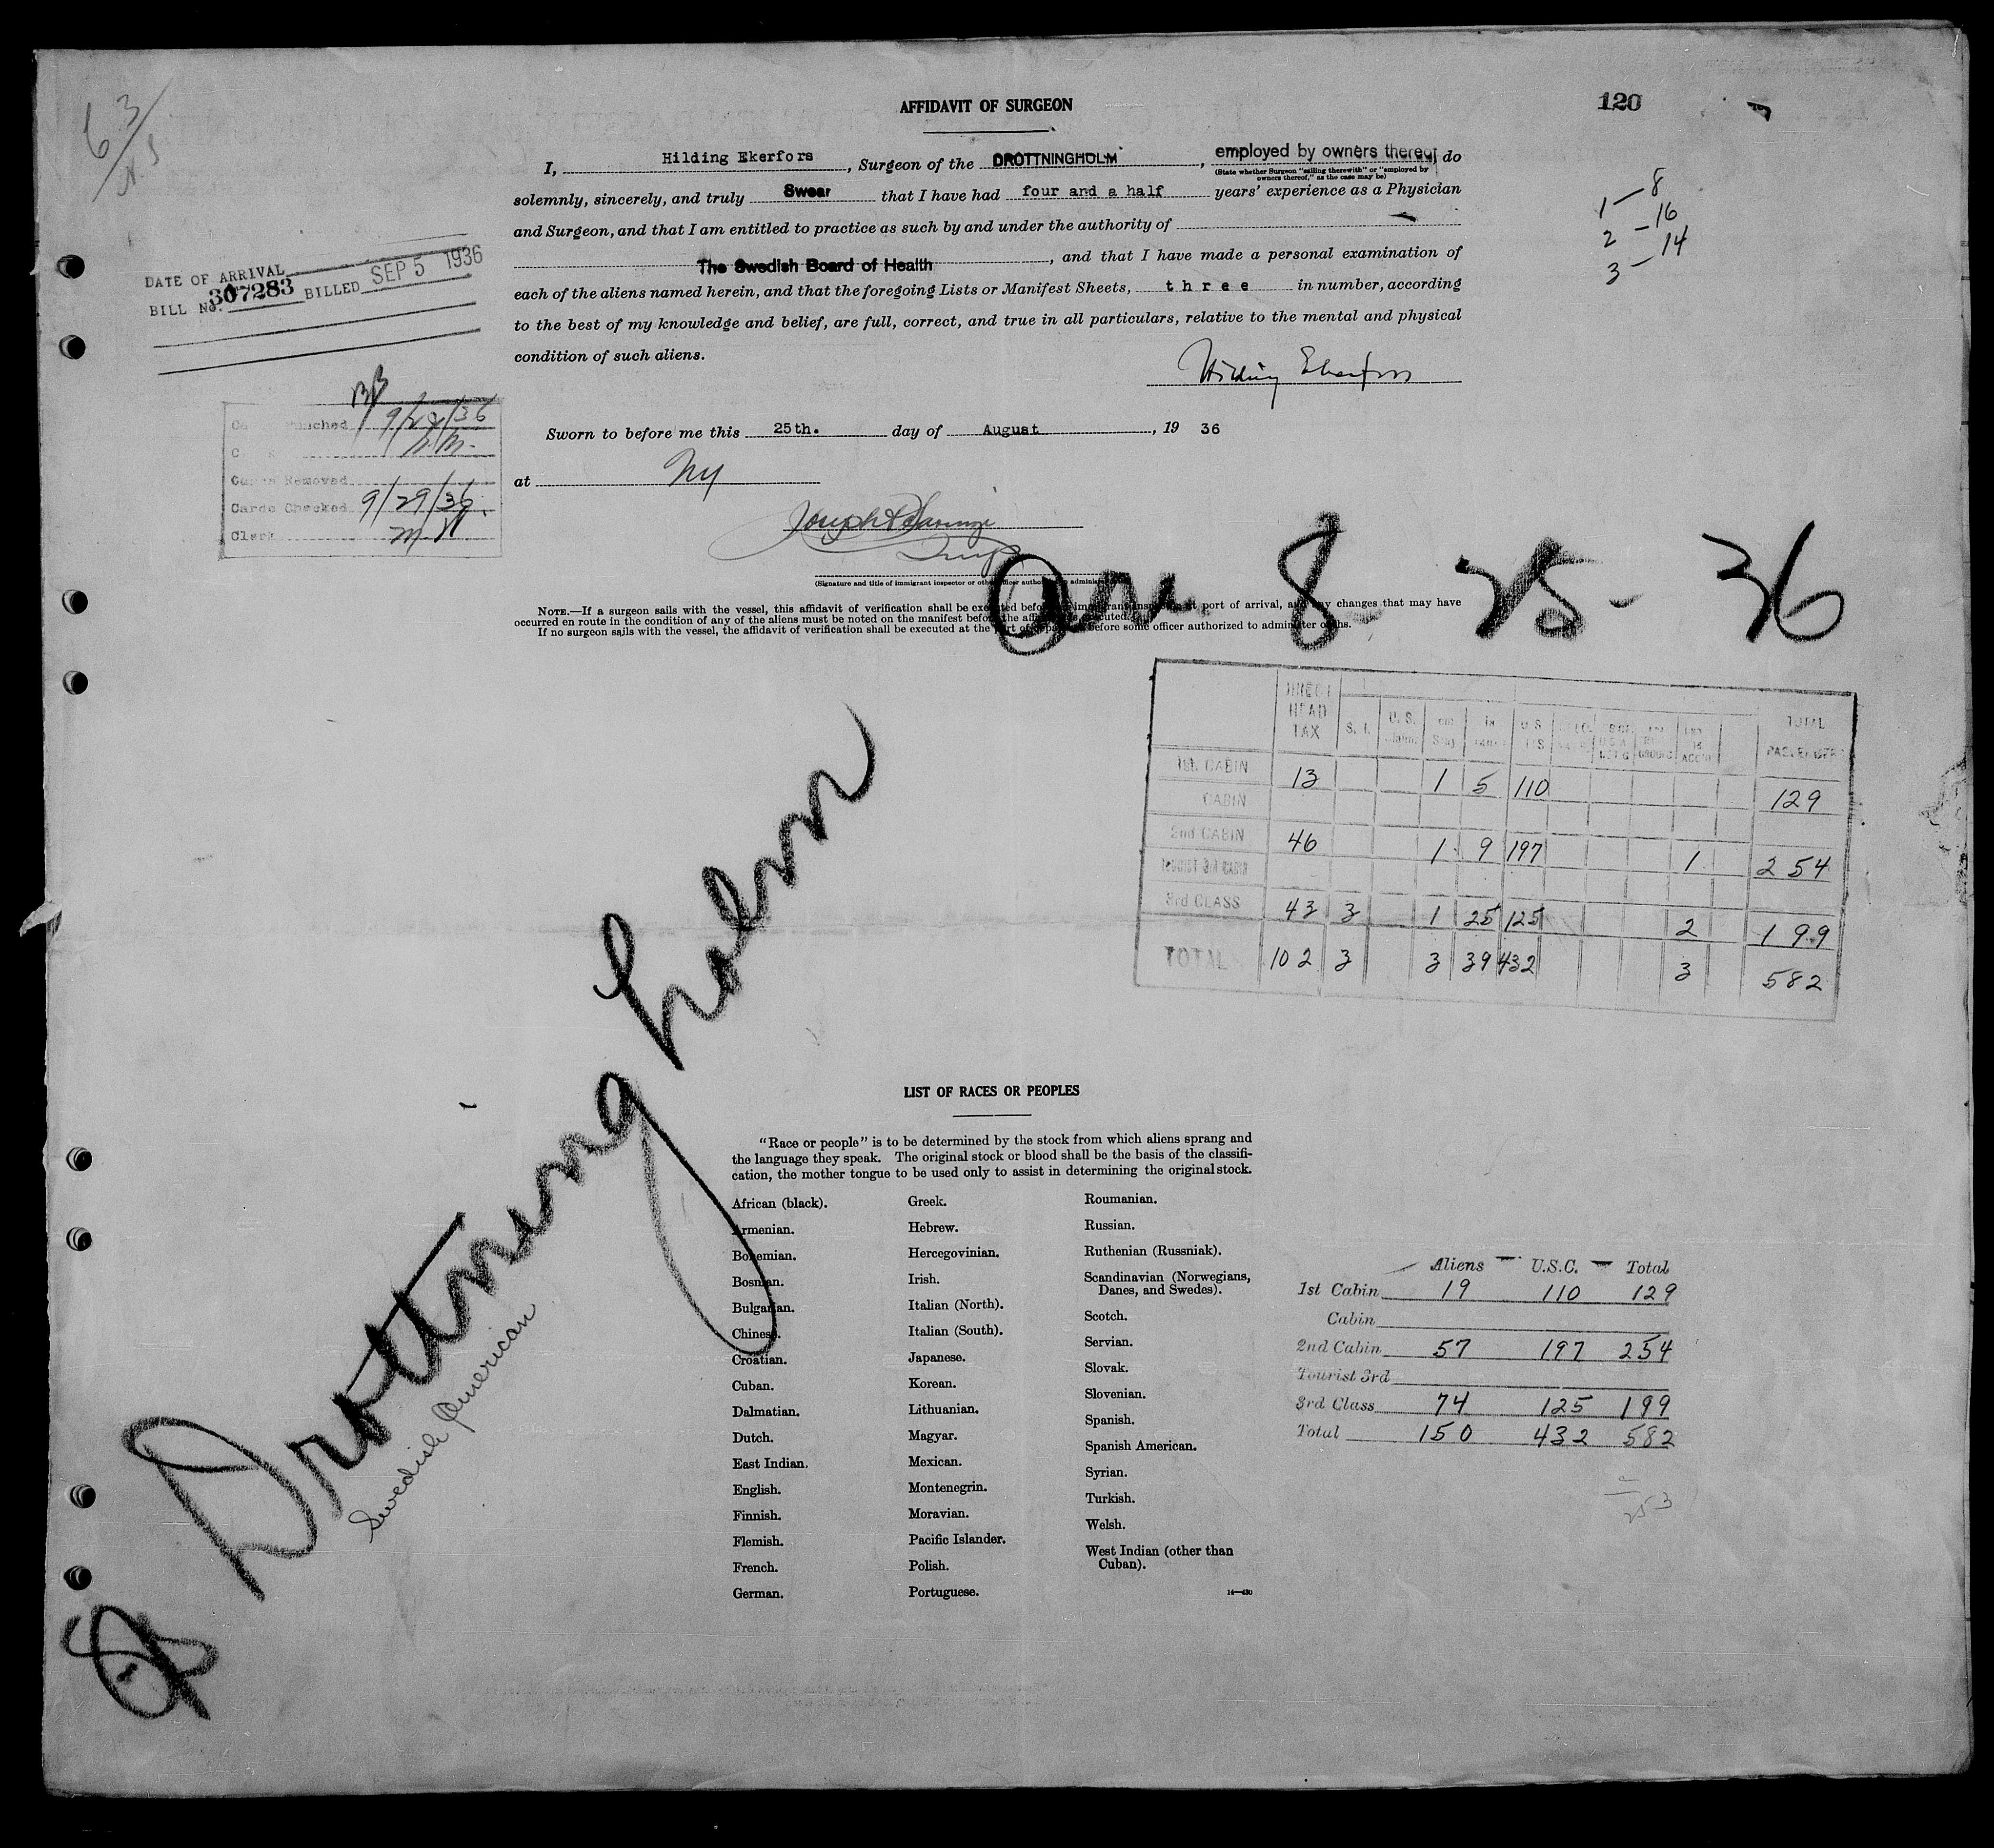 63/
N.S
AFFIDAVIT OF SURGEON
120
I, Hilding Ekerfors, Surgeon of the DROTTNINGHOLM, employed by owners thereof do
(State whether Surgeon "sailing therewith" or "employed by
owners thereof," as the case may be)
solemnly, sincerely, and truly Swear that I have had four and a half years' experience as a Physician
and Surgeon, and that I am entitled to practice as such by and under the authority of
The Swedish Board of Health, and that I have made a personal examination of
each of the aliens named herein, and that the foregoing Lists or Manifest Sheets, three in number, according
to the best of my knowledge and belief, are full, correct, and true in all particulars, relative to the mental and physical
condition of such aliens.
Hilding Ekerfors
1 - 8
2 - 16
3 - 14
DATE OF ARRIVAL
BILL No. 307283 BILLED SEP 5 1936
Sworn to before me this 25th. day of August, 19 36
at NY
9/29/36
Cards Removed
Cards Checked 9/29/36
Clerk M.W.
(Signature and title of immigrant inspector or other officer authorized to administer
NOTE.—If a surgeon sails with the vessel, this affidavit of verification shall be executed before immigrant inspector at port of arrival, and any changes that may have
occurred en route in the condition of any of the aliens must be noted on the manifest before the affidavit is executed.
If no surgeon sails with the vessel, the affidavit of verification shall be executed at the port of departure before some officer authorized to administer oaths.
Arr. 8-25-36
DIRECT HEAD TAX S. I. U. S. U S TOTAL PASSENGERS
1st CABIN 13 1 5 110 129
CABIN
2nd CABIN 46 1 9 197 1 254
TOURIST 3rd CABIN
3rd CLASS 43 3 1 25 125 2 199
TOTAL 102 3 3 39 432 3 582
Drottningholm
Swedish American
LIST OF RACES OR PEOPLES
"Race or people" is to be determined by the stock from which aliens sprang and
the language they speak. The original stock or blood shall be the basis of the classifi-
cation, the mother tongue to be used only to assist in determining the original stock.
African (black).
Armenian.
Bohemian.
Bosnian.
Bulgarian.
Chinese.
Croatian.
Cuban.
Dalmatian.
Dutch.
East Indian.
English.
Finnish.
Flemish.
French.
German.
Greek.
Hebrew.
Hercegovinian.
Irish.
Italian (North).
Italian (South).
Japanese.
Korean.
Lithuanian.
Magyar.
Mexican.
Montenegrin.
Moravian.
Pacific Islander.
Polish.
Portuguese.
Roumanian.
Russian.
Ruthenian (Russniak).
Scandinavian (Norwegians,
Danes, and Swedes).
Scotch.
Servian.
Slovak.
Slovenian.
Spanish.
Spanish American.
Syrian.
Turkish.
Welsh.
West Indian (other than
Cuban).
Aliens - U.S.C. - Total
1st Cabin 19 110 129
Cabin
2nd Cabin 57 197 254
Tourist 3rd
3rd Class 74 125 199
Total 150 432 582
253